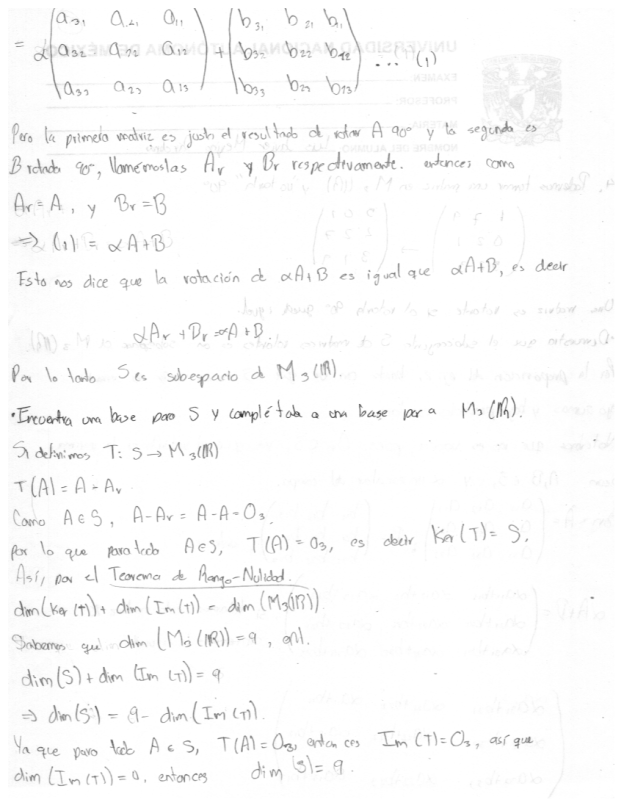 = α (a₃₁ a₂₁ a₁₁
a₃₂ a₂₂ a₁₂
a₃₃ a₂₃ a₁₃) + (b₃₁ b₂₁ b₁₁
b₃₂ b₂₂ b₁₂
b₃₃ b₂₃ b₁₃) ... (1)
Pero la primera matriz es justo el resultado de rotar A 90° y la segunda es
B rotado 90°, llamémoslas Ar y Br respectivamente. entonces como
Ar = A, y Br = B
⇒ (1) = αA+B
Esto nos dice que la rotación de αA+B es igual que αA+B, es decir
αAr + Br = αA + B.
Por lo tanto S es subespacio de M₃(ℝ).
• Encuentra una base para S y complétala a una base para M₃(ℝ).
Si definimos T: S → M₃(ℝ)
T(A) = A - Ar
Como A ∈ S, A - Ar = A - A = O₃.
por lo que para todo A∈S, T(A) = O₃, es decir Ker(T) = S.
Así, por el Teorema de Rango-Nulidad.
dim(Ker(T)) + dim(Im(T)) = dim(M₃(ℝ))
Sabemos que dim (M₃(ℝ)) = 9, ent.
dim(S) + dim(Im(T)) = 9
⇒ dim(S) = 9 - dim(Im(T)).
Ya que para todo A ∈ S, T(A) = O₃, entonces Im(T) = O₃, así que
dim(Im(T)) = 0. entonces dim(S) = 9.